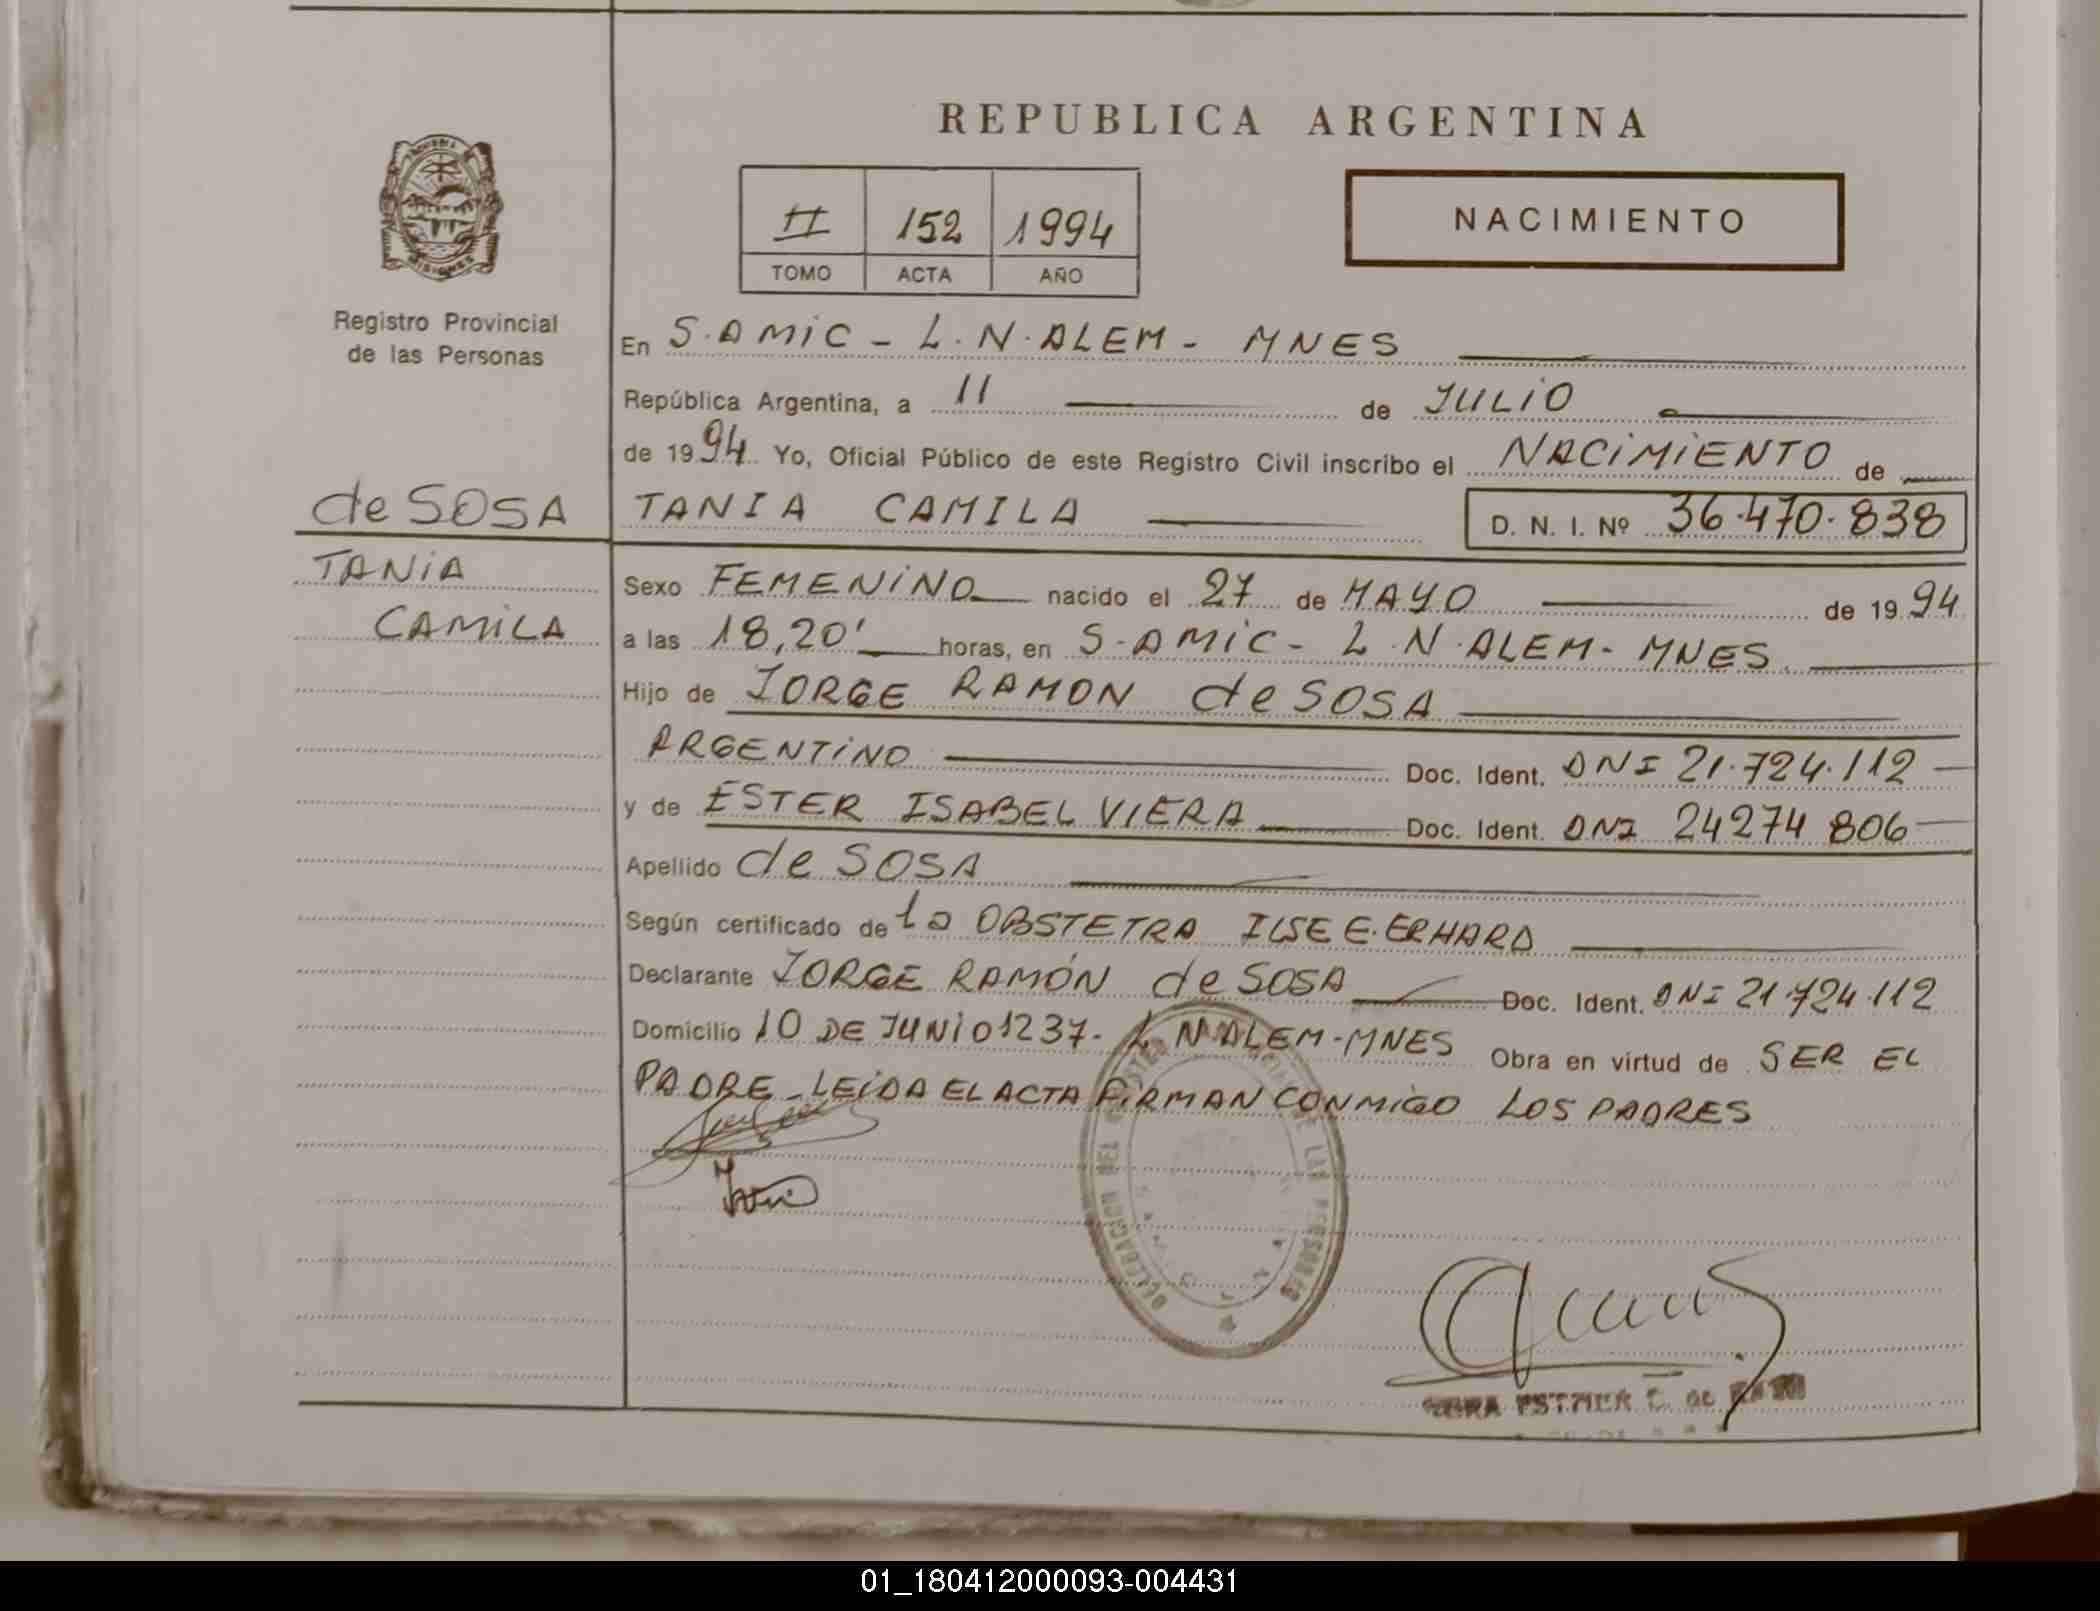 REPUBLICA ARGENTINA
II 152 1994
TOMO ACTA AÑO
NACIMIENTO
MISIONES
Registro Provincial
de las Personas
En S. AMIC - L. N. ALEM - MNES
República Argentina, a 11 de JULIO
de 1994 Yo, Oficial Público de este Registro Civil inscribo el NACIMIENTO de
de SOSA
TANIA
CAMILA
TANIA CAMILA D. N. I. Nº 36.470.838
Sexo FEMENINO nacido el 27 de MAYO de 1994
a las 18,20' horas, en S. AMIC - L. N. ALEM - MNES
Hijo de JORGE RAMON de SOSA
ARGENTINO Doc. Ident. DNI 21.724.112
y de ESTER ISABEL VIERA Doc. Ident. DNI 24274806
Apellido de SOSA
Según certificado de la OBSTETRA ILSE E. ERHARD
Declarante JORGE RAMÓN de SOSA Doc. Ident. DNI 21.724.112
Domicilio 10 DE JUNIO 1237 - L N ALEM - MNES Obra en virtud de SER EL
PADRE - LEIDA EL ACTA FIRMAN CONMIGO LOS PADRES
DELEGACION DEL DE LAS PERSONAS
01_180412000093-004431